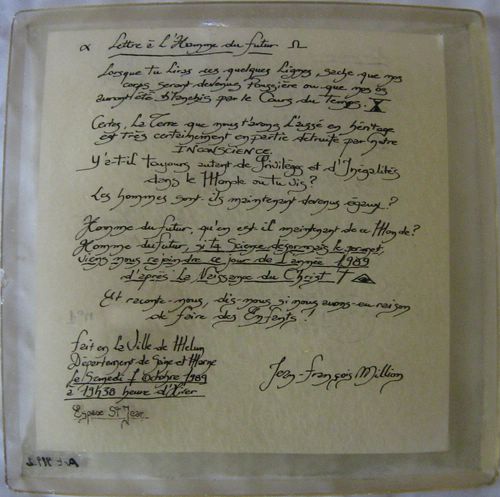 α Lettre à l'Homme du futur Ω
Lorsque tu Liras ces quelques Lignes, sache que nos
corps seront devenus Poussière ou que nos os
auront été blanchis par le Cours du Temps. X
Certes, La Terre que nous t'avons Laissé en héritage
est Très certainement en partie détruite par notre
INCONSCIENCE.
Y'a-t-il toujours autant de Privilèges et d'Inégalités
dans le Monde où tu vis?
Les hommes sont-ils maintenant devenus égaux?
Homme du futur, qu'en est-il maintenant de ce Monde?
Homme du futur, si la Science désormais le permet,
viens nous rejoindre ce jour de L'année 1989
d'après La Naissance du Christ †
Et raconte-nous, dis-nous si nous avons-eu raison
de faire des Enfants!
fait en La Ville de Melun
Département de Seine et Marne
Le Samedi 1 Octobre 1989
à 19H30 heure d'Hiver
Espace St Jean
Jean-François Million